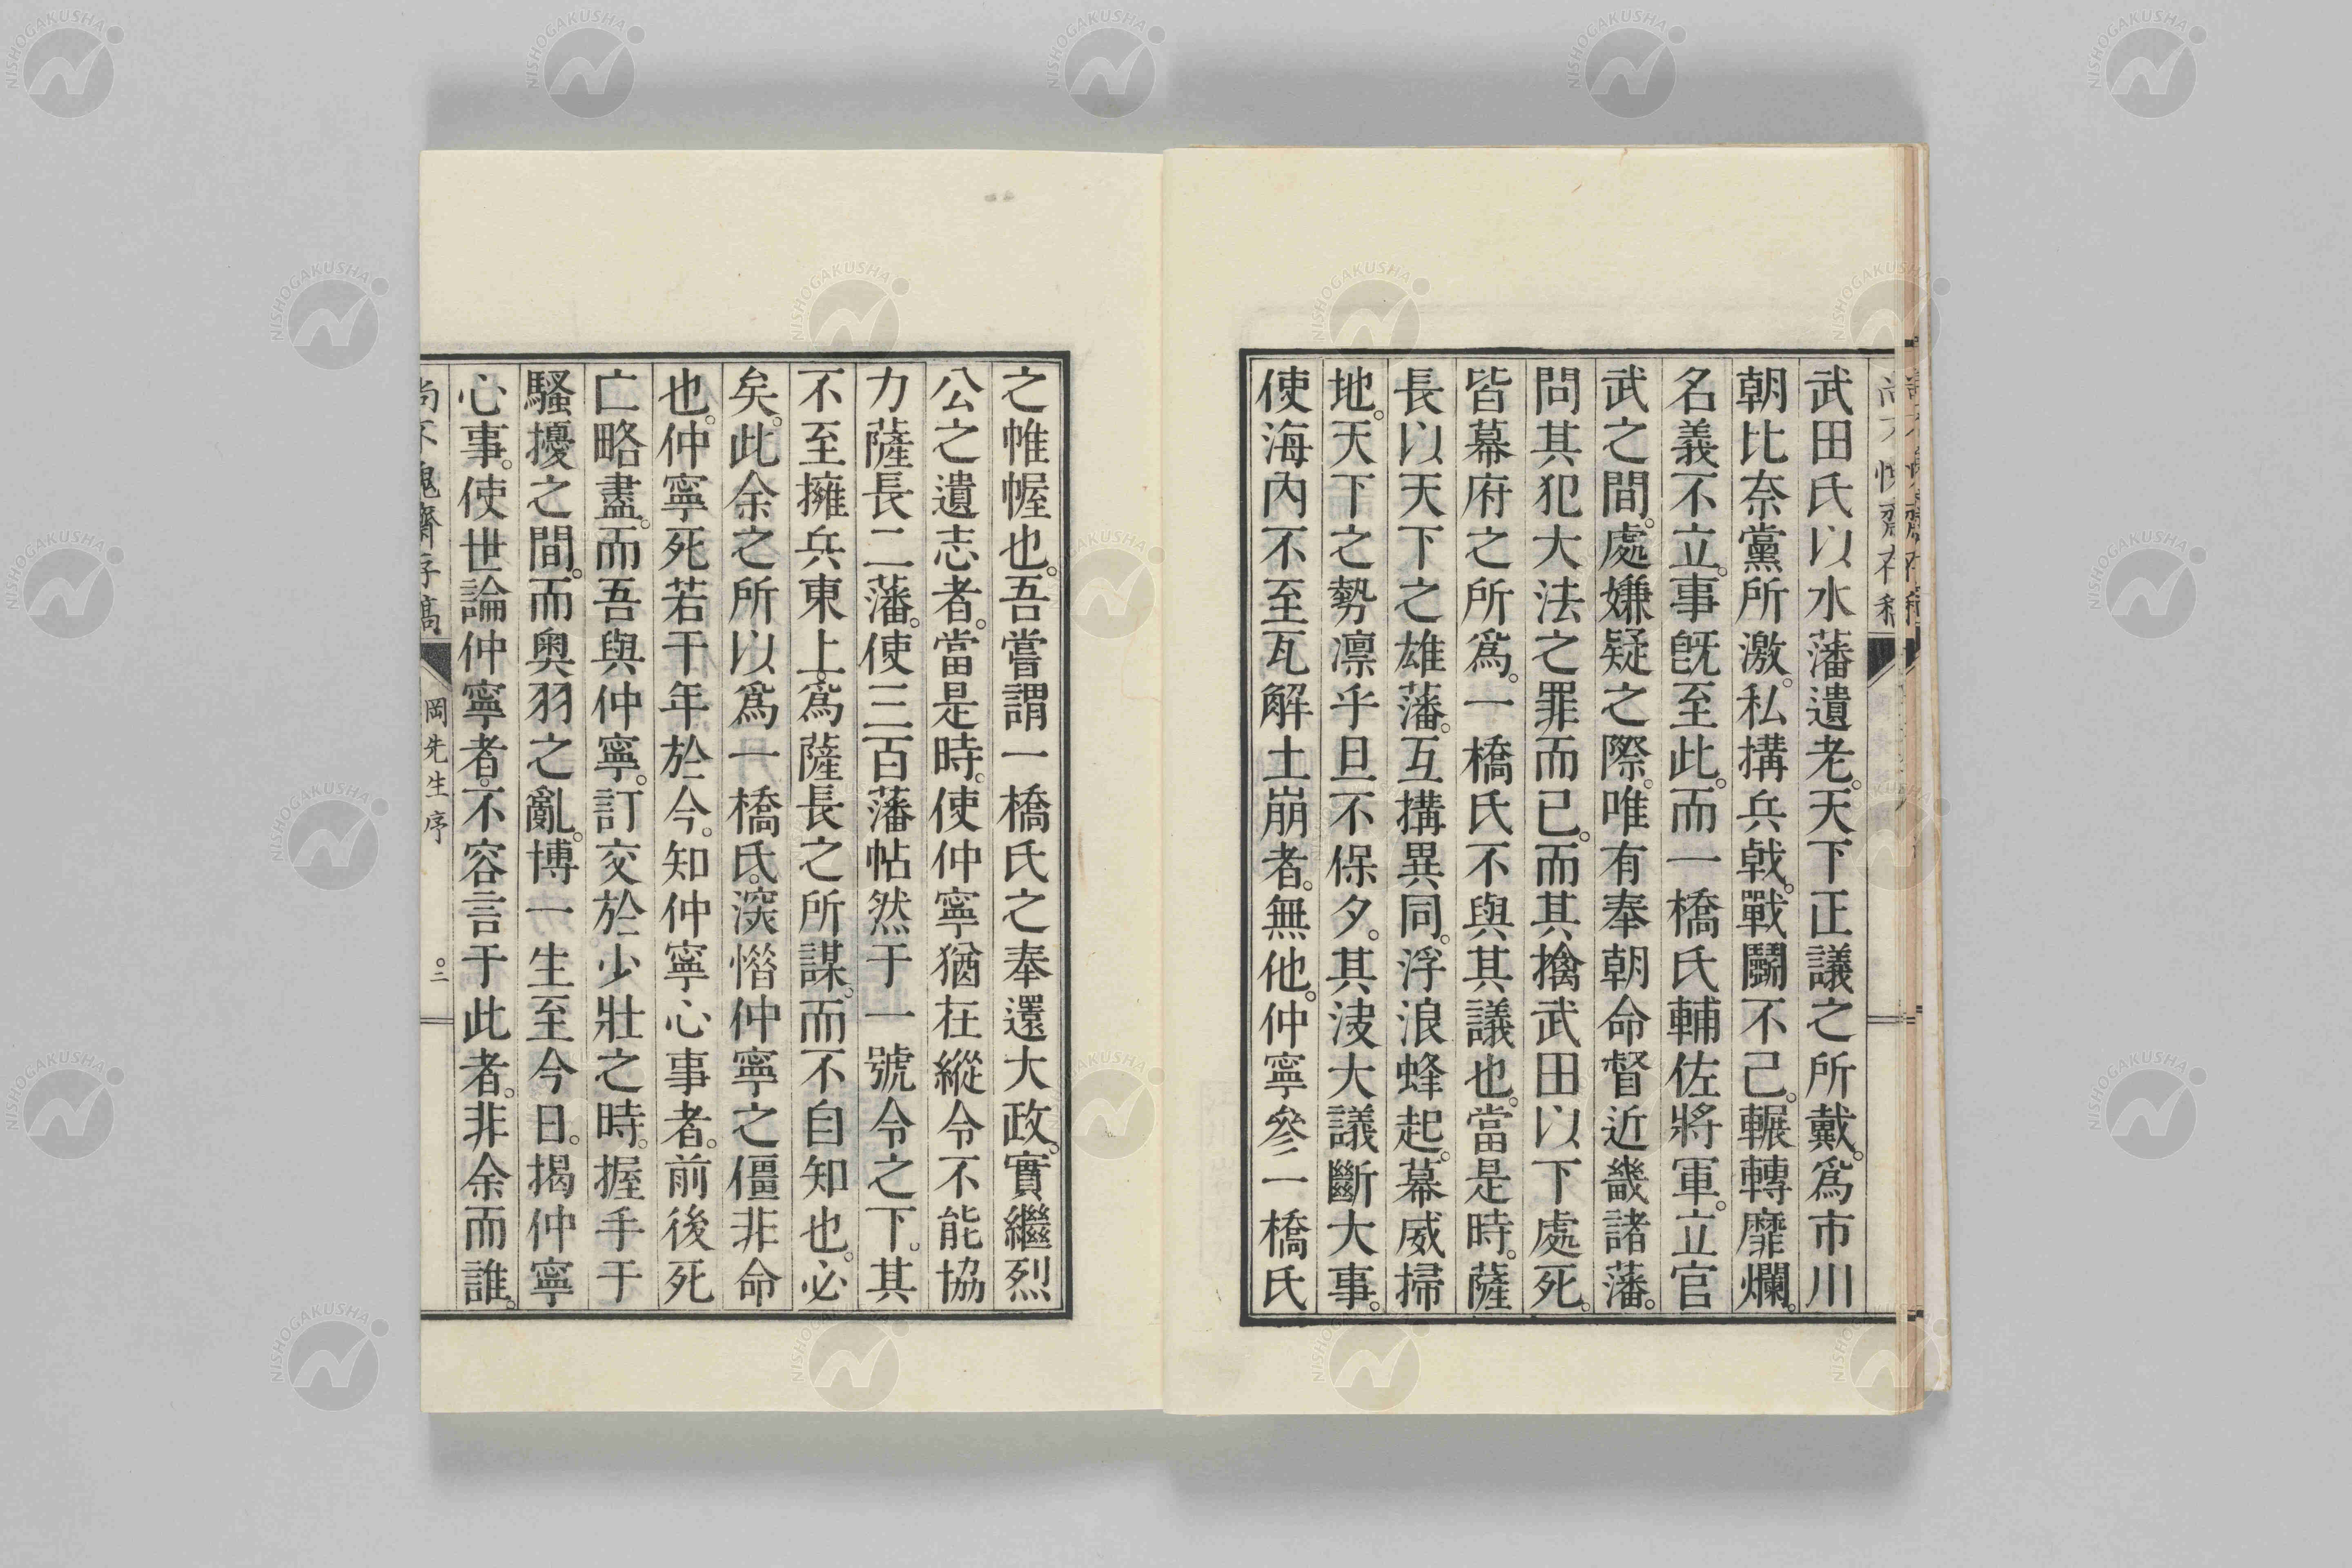 武田氏以水藩遺老。天下正議之所戴。爲市川
朝比奈黨所激。私搆兵戟。戰鬪不已。輾轉靡爛。
名義不立。事旣至此。而一橋氏輔佐將軍。立官
武之間。處嫌疑之際。唯有奉朝命督近畿諸藩。
問其犯大法之罪而已。而其擒武田以下處死。
皆幕府之所爲。一橋氏不與其議也。當是時。薩
長以天下之雄藩。互搆異同。浮浪蜂起。幕威掃
地。天下之勢凛乎旦不保夕。其决大議斷大事。
使海內不至瓦解土崩者。無他。仲寧參一橋氏
之帷幄也。吾嘗謂一橋氏之奉還大政。實繼烈
公之遺志者。當是時。使仲寧猶在。縱令不能協
力薩長二藩。使三百藩帖然于一號令之下。其
不至擁兵東上。爲薩長之所謀。而不自知也。必
矣。此余之所以爲一橋氏。深憯仲寧之僵非命
也。仲寧死若干年於今。知仲寧心事者。前後死
亡略盡。而吾與仲寧。訂交於少壯之時。握手于
騷擾之間。而奥羽之亂。博一生至今日。揭仲寧
心事。使世論仲寧者。不容言于此者。非余而誰。
尚不愧齋存稿
岡先生序
〇二
NISHOGAKUSHA